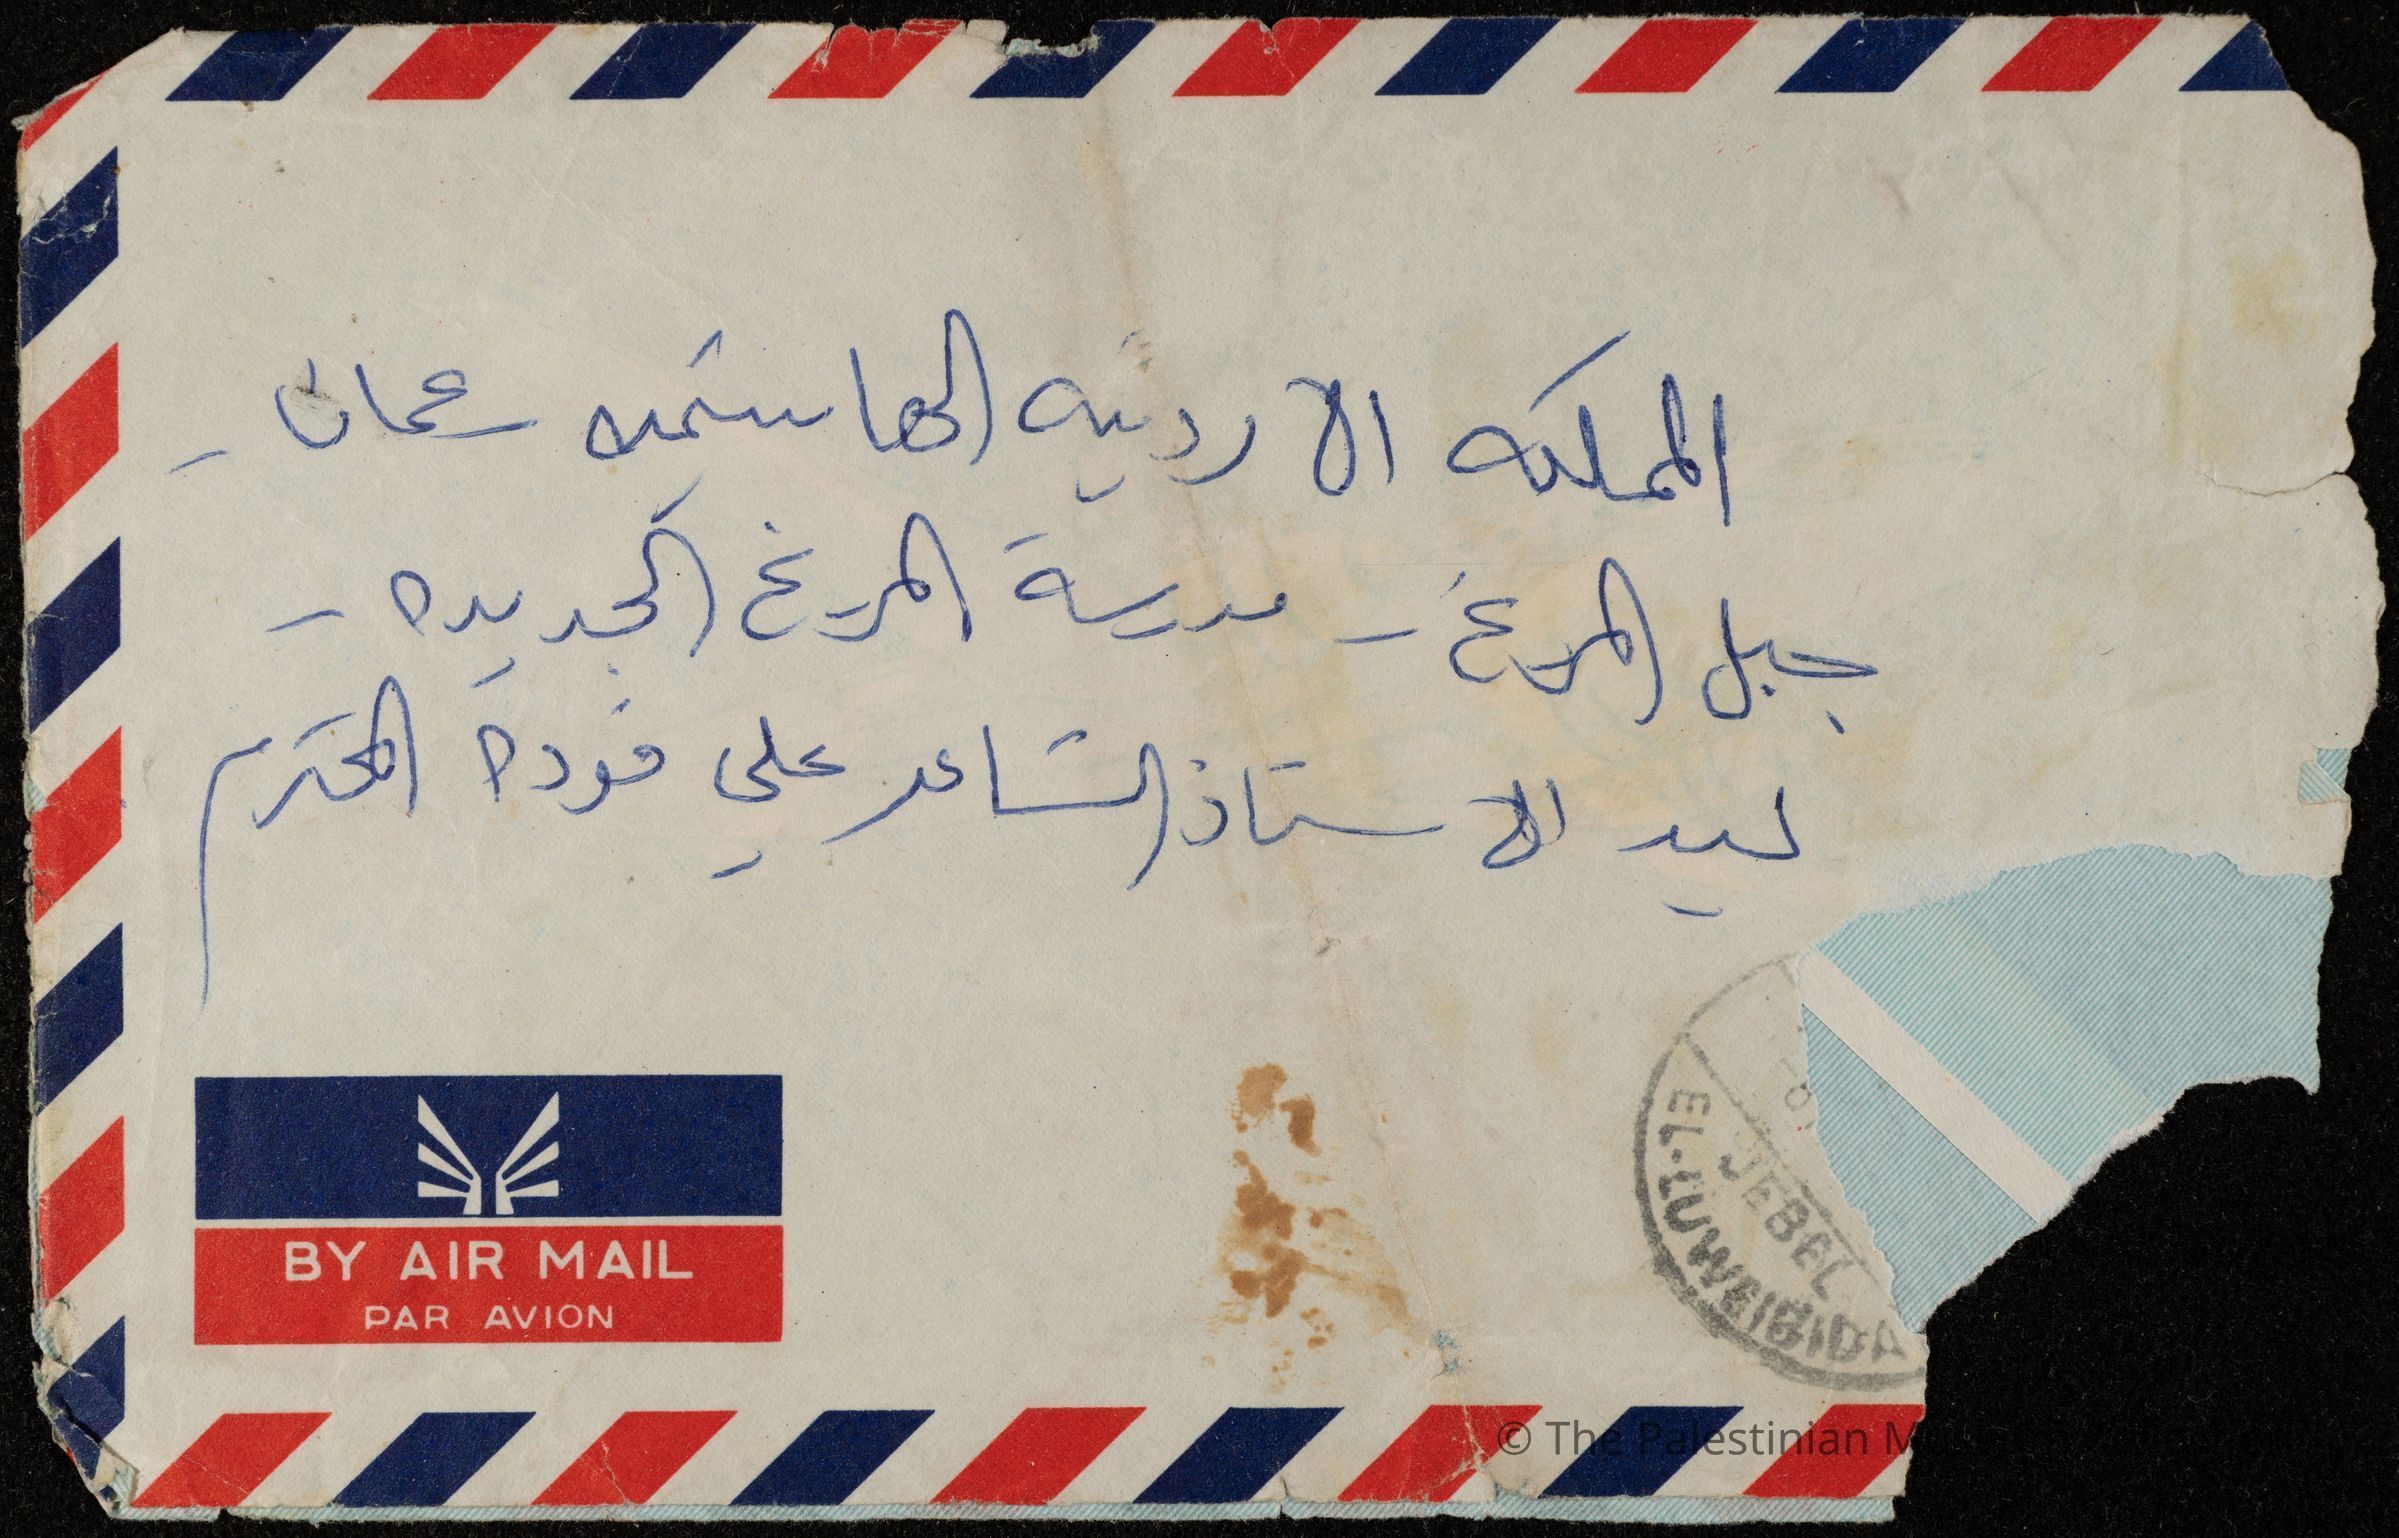 المملكه الاردنيه الهاشميه - عمان -
جبل المريخ - مدرسة المريخ الجديده -
ليد الاستاذ الشاعر علي فوده المحترم
BY AIR MAIL
PAR AVION
JEBEL
EL-LUWEIBIDA
© The Palestinian M